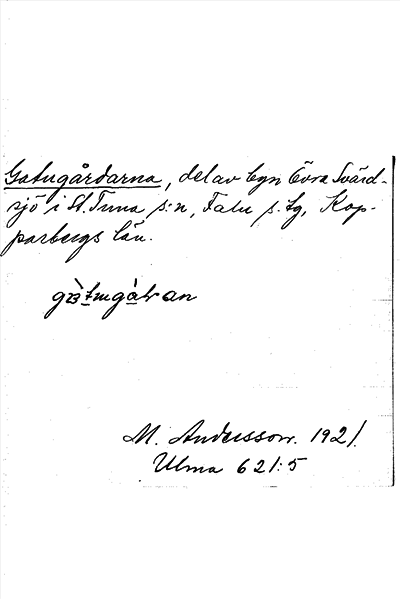 Gatugårdarna, del av byn Övra Svärd-
sjö i St. Tuna s:n, Falu s. tg, Kop-
parbergs län.
M. Andersson. 1921.
Ulma 621:5